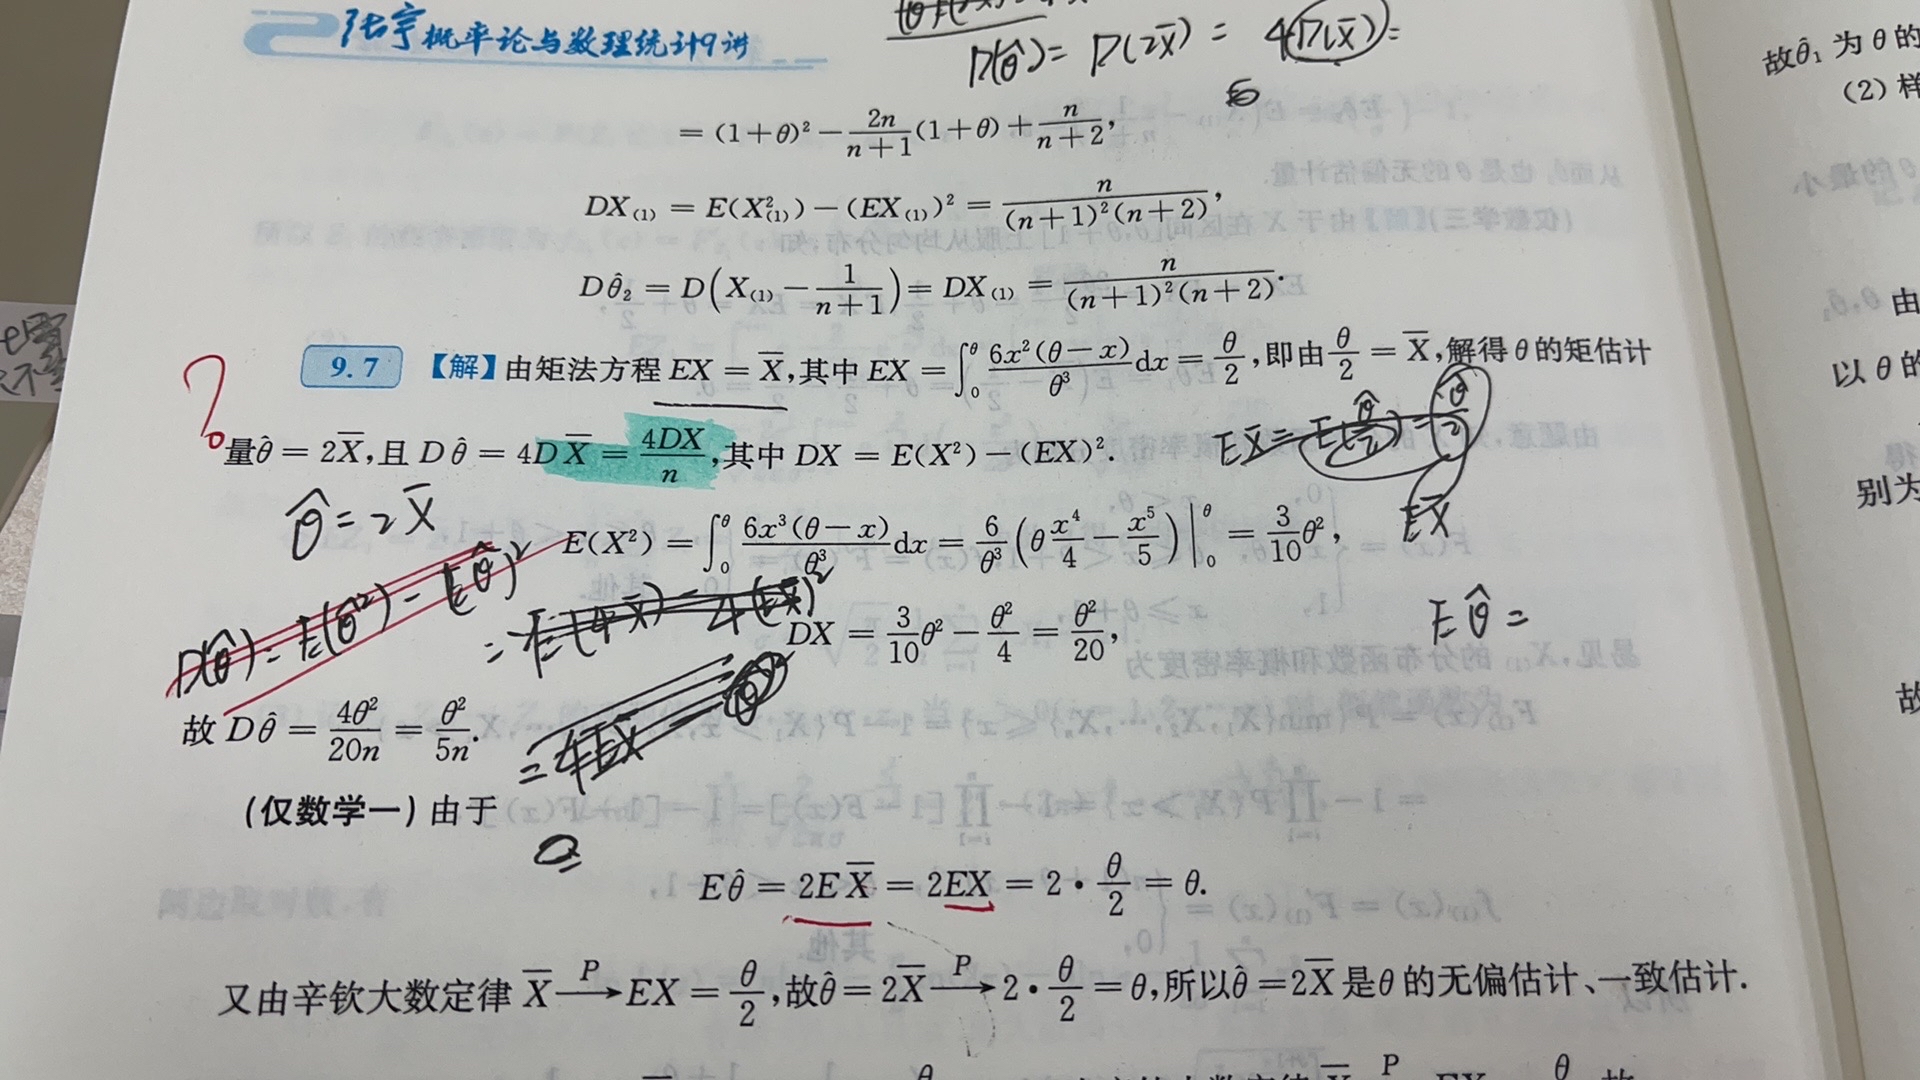 张宇概率论与数理统计9讲
D(θ̂) = D(2X̄) = 4D(X̄) =
= (1+θ)² − 2n/(n+1) (1+θ) + n/(n+2),
DX₍₁₎ = E(X²₍₁₎) − (EX₍₁₎)² = n/((n+1)²(n+2)),
Dθ̂₂ = D(X₍₁₎ − 1/(n+1)) = DX₍₁₎ = n/((n+1)²(n+2)).
?
9.7 【解】由矩法方程 EX = X̄,其中 EX = ∫₀^θ 6x²(θ−x)/θ³ dx = θ/2,即由 θ/2 = X̄,解得 θ 的矩估计
量 θ̂ = 2X̄,且 Dθ̂ = 4DX̄ = 4DX/n,其中 DX = E(X²) − (EX)².
EX̄ = E(θ̂/2) = θ̂/2
EX̄
θ̂ = 2X̄
E(X²) = ∫₀^θ 6x³(θ−x)/θ³ dx = 6/θ³ (θ x⁴/4 − x⁵/5) |₀^θ = 3/10 θ²,
D(θ̂) = E(θ̂²) − (Eθ̂)²
= E(4X̄) − 4(EX̄)²
DX = 3/10 θ² − θ²/4 = θ²/20,
Eθ̂ =
故 Dθ̂ = 4θ²/20n = θ²/5n.
= 4EX̄
(仅数学一) 由于
Eθ̂ = 2EX̄ = 2EX = 2 · θ/2 = θ.
又由辛钦大数定律 X̄ —P→ EX = θ/2,故 θ̂ = 2X̄ —P→ 2 · θ/2 = θ,所以 θ̂ = 2X̄ 是 θ 的无偏估计、一致估计.
故 θ̂₁ 为 θ 的
(2) 样
由
以 θ 的
别为
故